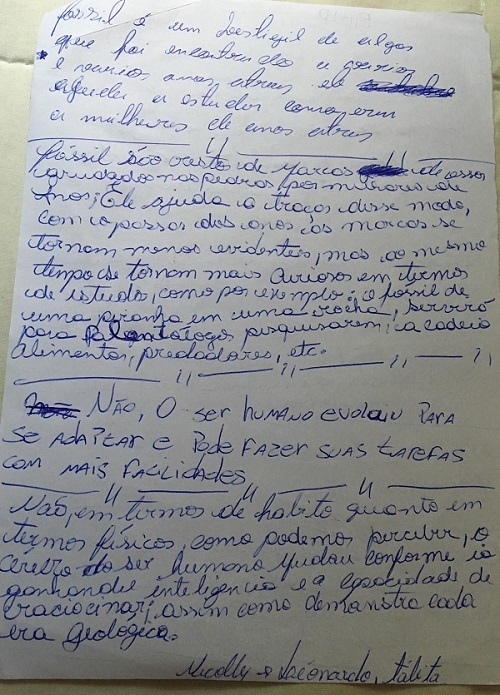 fóssil é um vestigil de algo
que foi encontrado a varios
e varios anos atras ele
ajuda a estudos como era
a milhares de anos atras
fóssil são resto de marcas de ossos
grudados nas pedras por milhares de
Anos; Ele ajuda a traços desse modo,
com o passar dos anos as marcas se
tornam menos evidentes, mas ao mesmo
tempo se tornam mais curiosos em termos
de estudo, como por exemplo: o fóssil de
uma piranha em uma rocha, servirá
para Paleontólogos pesquisarem; a cadeia
Alimentar, predadores, etc.
NÃO, O SER HUMANO EVOLUIU PARA
SE ADAPTAR E PODE FAZER SUAS TAREFAS
COM MAIS FACILIDADES
Não, em termos de habito quanto em
termos físicos, como podemos perceber, o
cérebro do ser humano mudou conforme ia
ganhando inteligencia e a capacidade de
raciocinar, assim como demonstra cada
era geológica.
Nicolly e Leonardo, tálita